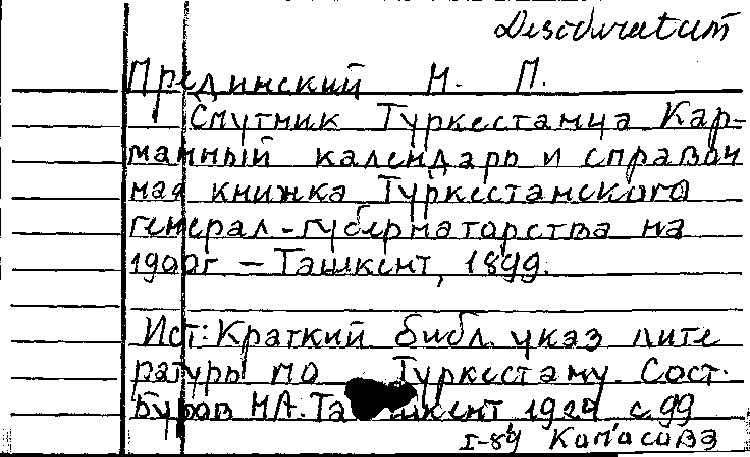 Desiduratum
Прединский Н. П.
Спутник Туркестанца Кар-
манный календарь и справоч
ная книжка Туркестанского
генерал-губернаторства на
1900г – Ташкент, 1899.
Ист: Краткий библ. указ лите
ратуры по Туркестану. Сост.
Буров НА. Ташкент 1924 с. 99
I-89